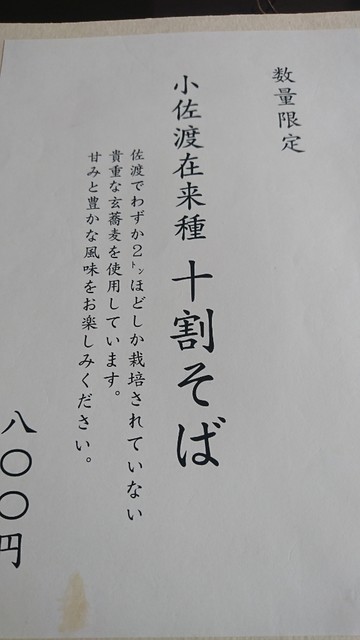 数量限定
小佐渡在来種 十割そば
佐渡でわずか2㌧ほどしか栽培されていない
貴重な玄蕎麦を使用しています。
甘みと豊かな風味をお楽しみください。
八〇〇円